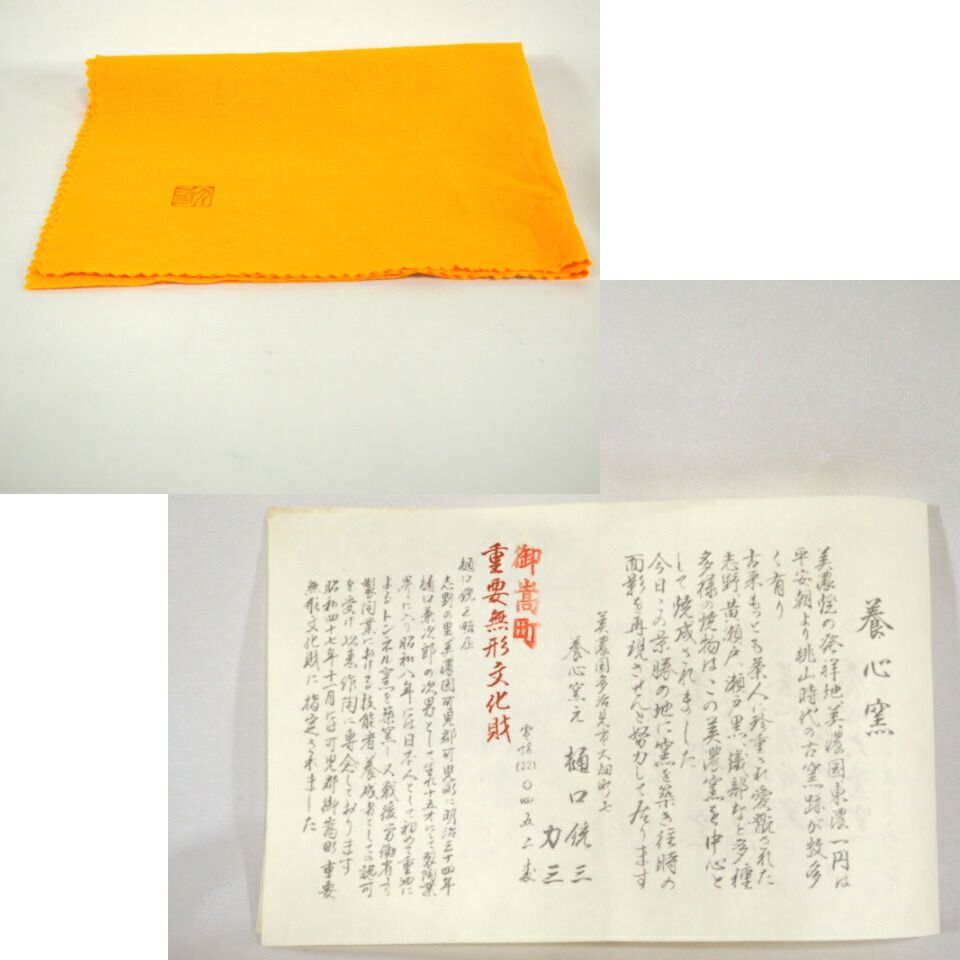 養心窯
美濃焼の発祥地美濃国東濃一円は
平安朝より桃山時代の古窯跡が数多
く有り
古来もっとも茶人に珍重され愛翫された
志野、黄瀬戸、瀬戸黒、織部など多種
多様の焼物はこの美濃窯を中心と
して焼成されました
今日この景勝の地に窯を築き往時の
面影を再現させんと努力して居ります
美濃国多治見市大畑町七
養心窯元 樋口 統三
力三
電話(22)〇四五二番
御嵩町
重要無形文化財
樋口 略歴
志野の里美濃国可児郡可児町に明治三十四年
樋口兼次郎の次男として生れ十五才にして製陶業
界に入り昭和八年には日本人として初めて重油に
よるトンネル窯を築窯し又戦後労働省より
製陶業における技能者養成者としての認可
を受け以来作陶に専念しております
昭和四十七年十一月には可児郡御嵩町重要
無形文化財に指定されました